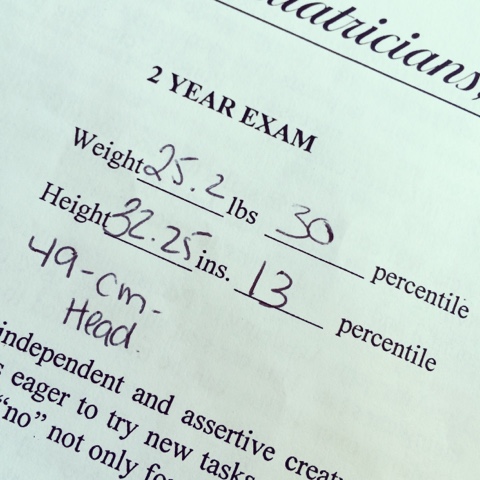 2 YEAR EXAM
Weight 25.2 lbs 30 percentile
Height 32.25 ins. 13 percentile
49-cm-
Head.
independent and assertive
eager to try new tasks
"no" not only